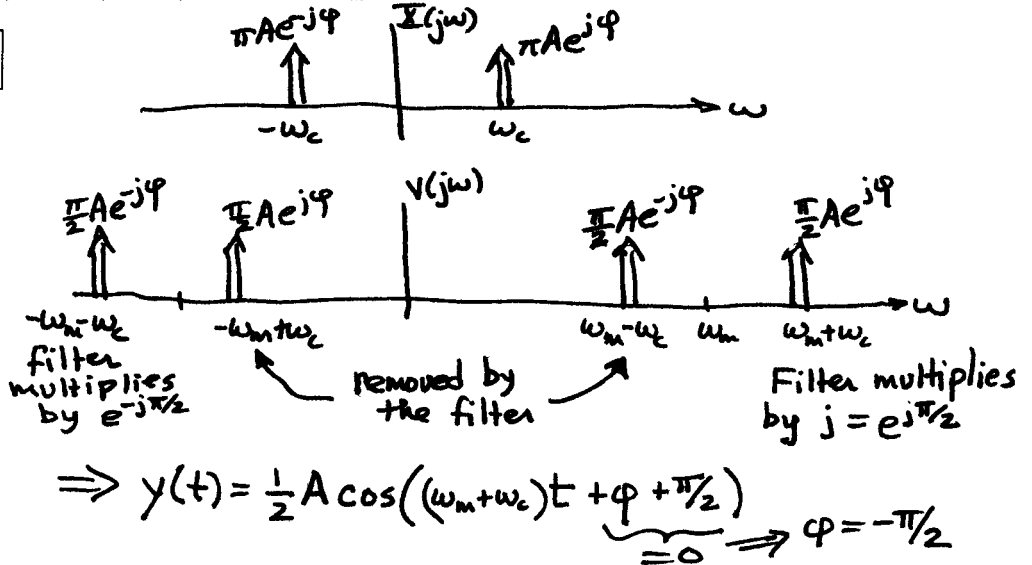 πAe^{-jφ} X(jω) πAe^{jφ}
-ω_c ω_c ω
π/2 Ae^{-jφ} π/2 Ae^{jφ} V(jω) π/2 Ae^{-jφ} π/2 Ae^{jφ}
-ω_m-ω_c -ω_m+ω_c ω_m-ω_c ω_m ω_m+ω_c ω
filter
multiplies
by e^{-jπ/2}
removed by
the filter
Filter multiplies
by j = e^{jπ/2}
⟹ y(t) = 1/2 A cos((ω_m+ω_c)t + φ + π/2)
= 0 ⟹ φ = -π/2